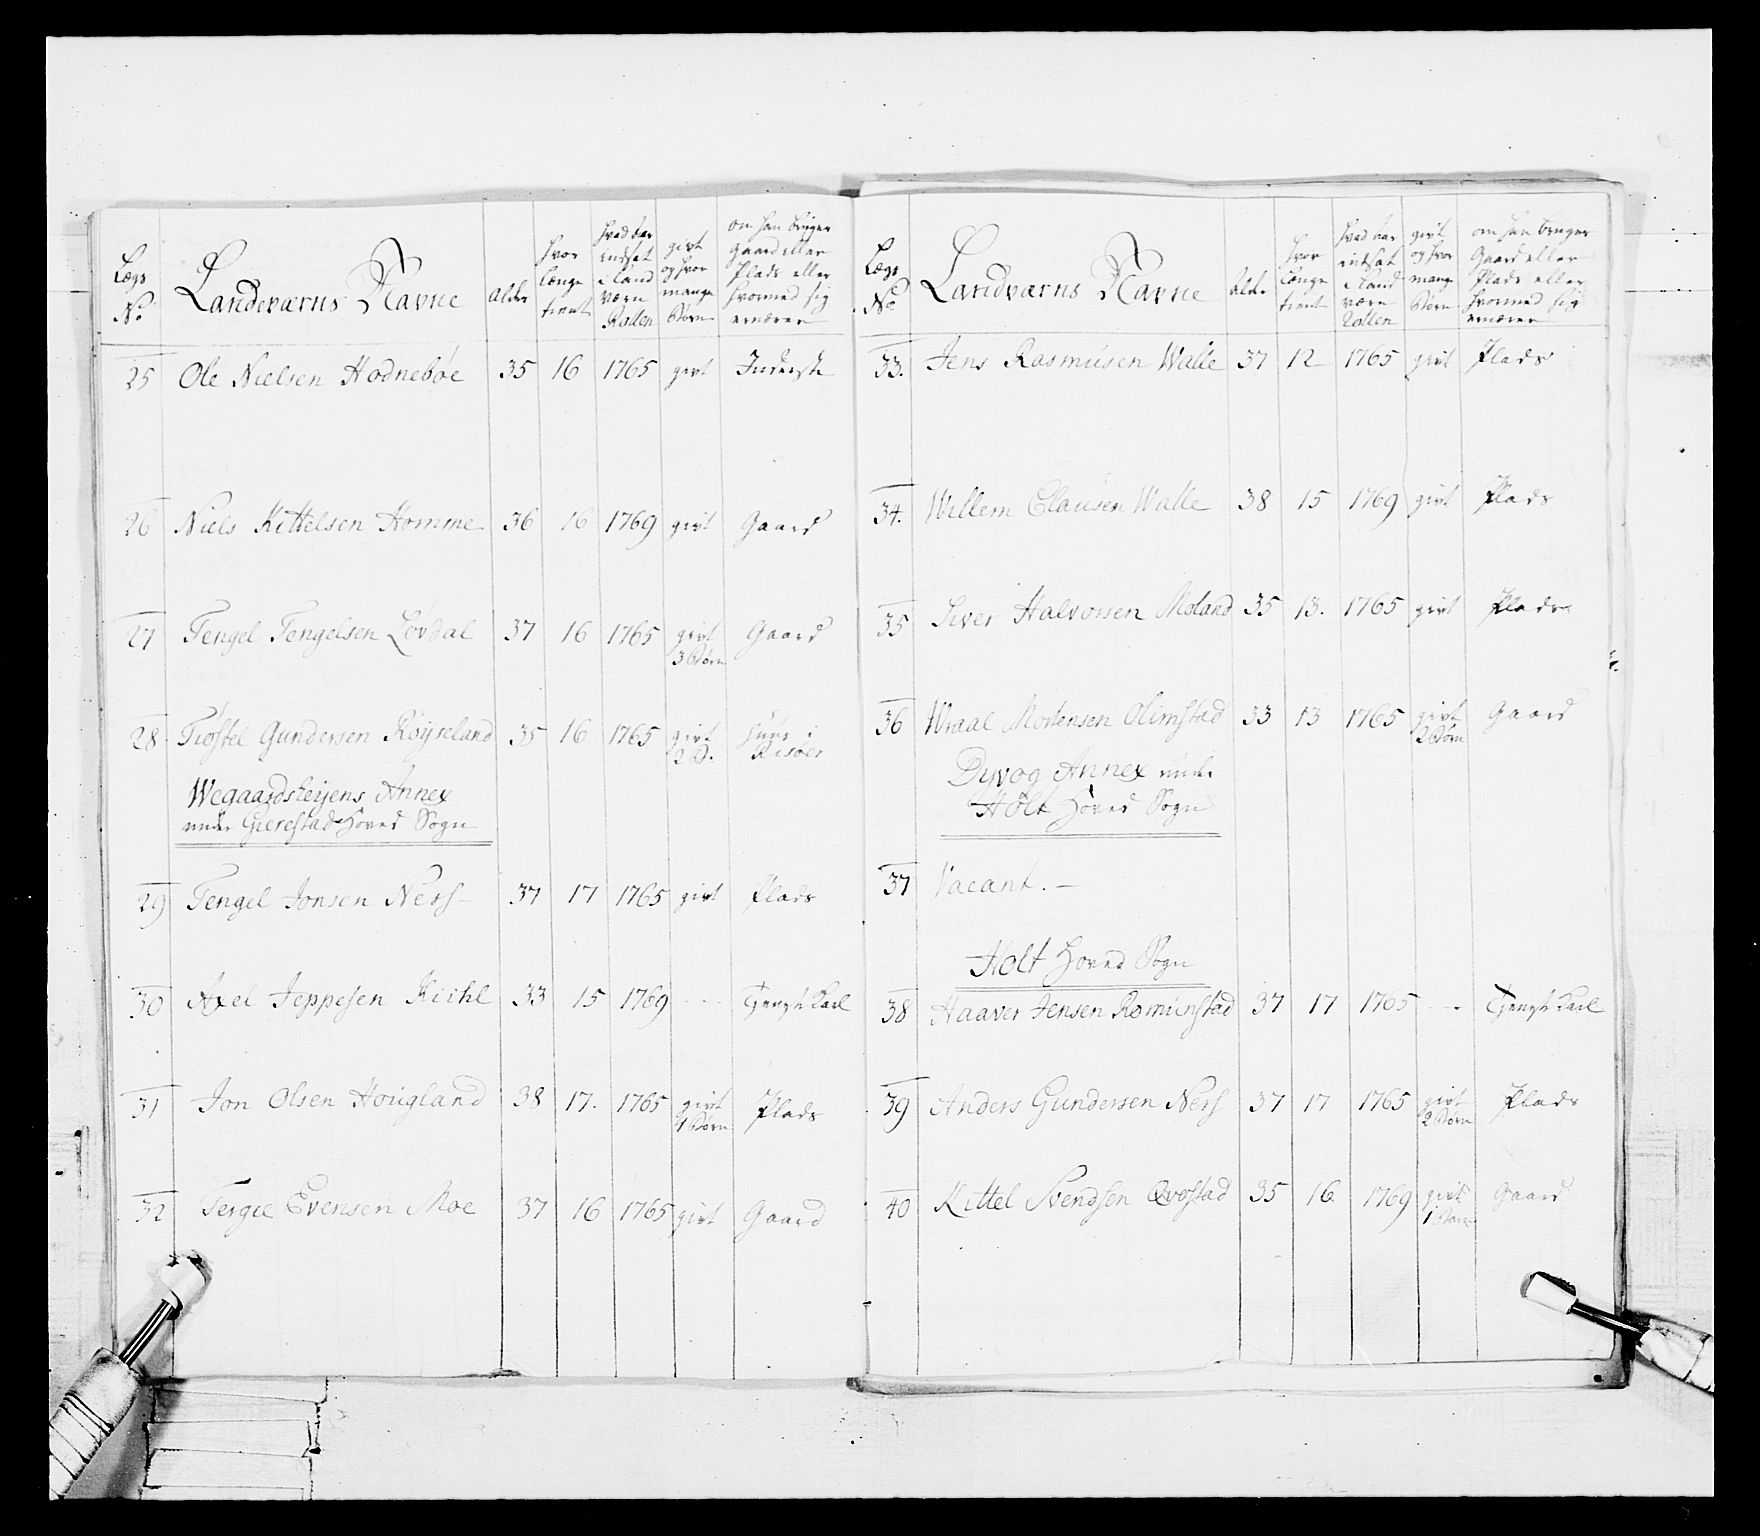 Lægs No. | Landeværns Navne | Alder | hvor længe tient | hvad aar indsat i Land værn Rollen | givt og hvor mange Børn | om han bruger Gaard eller Plads eller hvormed sig ernærer
25 Ole Nielsen Hodnebøe 35 16 1765 givt Inderste
26 Niels Kittelsen Homme 36 16 1769 givt Gaard
27 Tengel Tengelsen Løvdal 37 16 1765 givt 3 Børn Gaard
28 Tiøstel Gundersen Röyseland 35 16 1765 givt 2 B. Huus i Risöer
Wegaardsheyens Annex
under Gierestad Hoved Sogn
29 Tengel Jonsen Ness 37 17 1765 givt Plads
30 Axel Jeppesen Kiihl 33 15 1769 - - - Tjeneste Karl
31 Jon Olsen Hougland 38 17. 1765 givt 4 Børn Plads
32 Tergie Evensen Moe 37 16 1765 givt Gaard
Lægs No | Landværns Navne | Alder | hvor længe tient | hvad aar indsat i Land værn Rollen | givt og hvor mange Børn | om han bruger Gaard eller Plads eller hvormed sig ernærer
33. Jens Rasmusen Walle 37 12 1765 givt Plads
34. Willem Clausen Walle 38 15 1769 givt Plads
35 Siver Halvorsen Moland 35 13. 1765 givt Plads
36 Wraal Mortensen Olimstad 33 13 1765 givt 2 Børn Gaard
Dyvog Annex under
Holt Hoved Sogn
37 Vacant. —
Holt Hoved Sogn
38 Haaver Jensen Romunstad 37 17 1765 - - - Tjeneste Karl
39 Anders Gundersen Ness 37 17 1765 givt 2 Børn Plads
40 Kittel Svendsen Qvostad 35 16 1769 givt 1 Barn Gaard